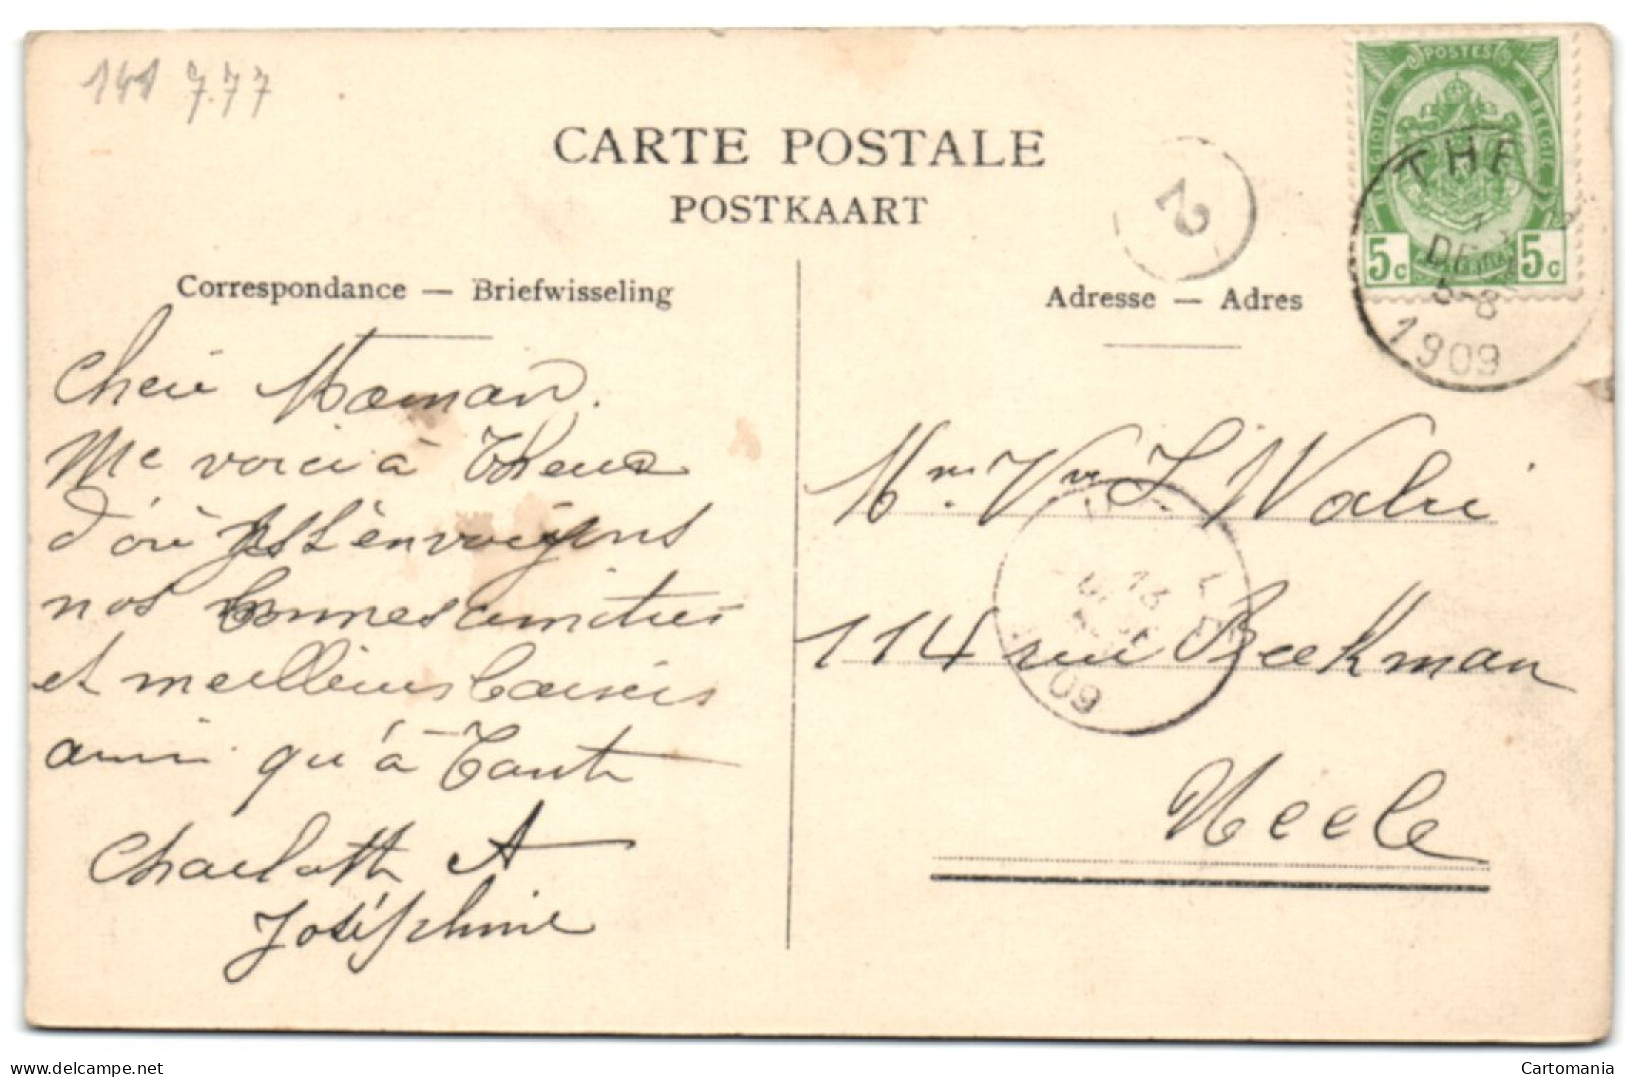 141 7.77
CARTE POSTALE
POSTKAART
Correspondance — Briefwisseling
Adresse — Adres
POSTES
BELGIQUE BELGIE
5c 5c
THEUX
DEC
1909
2
Cheri Maman.
Me voici à Theux
d'où envoyons
nos bonnes amitiés
et meilleurs baisers
ainsi qu'à Tante
Charlotte et
Joséphine
Mme Vve L Walri
114 rue Beekman
Uccle
13
UCCLE
1909
Cartomania